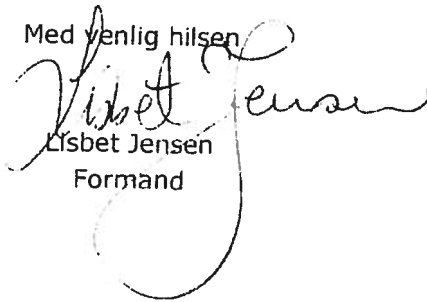 Med venlig hilsen
Lisbet Jensen
Lisbet Jensen
Formand